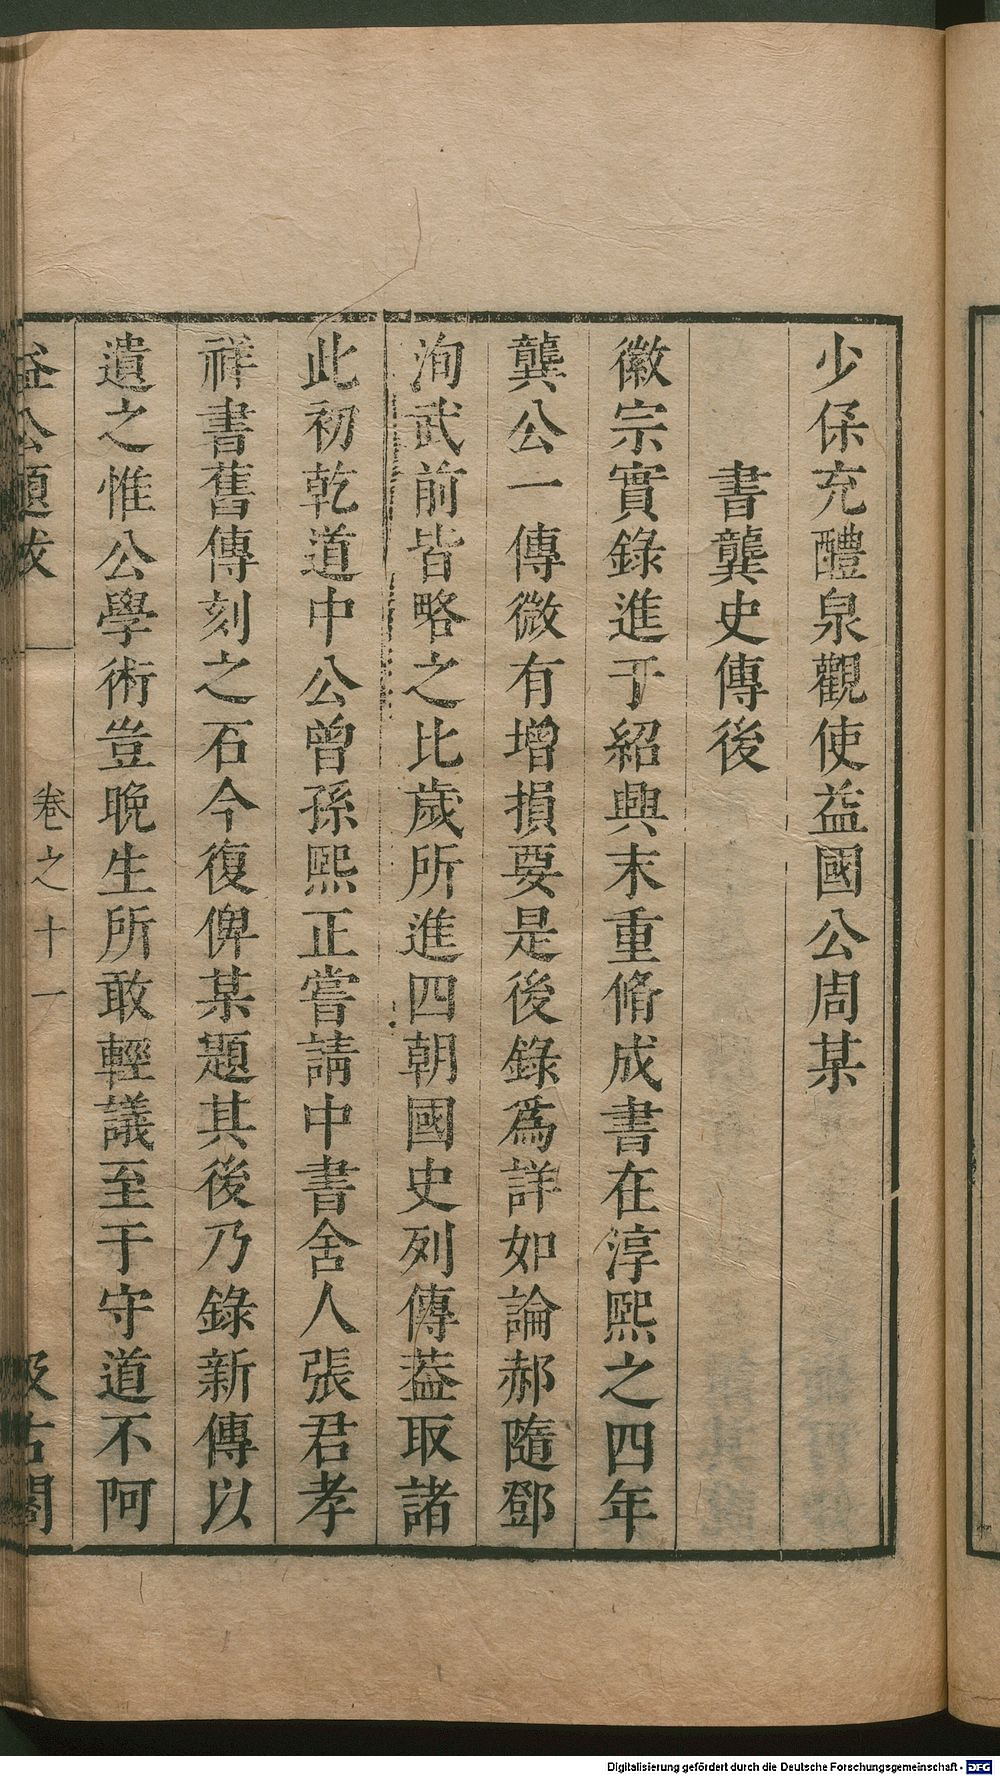 少保充醴泉觀使益國公周某
書龔史傳後
徽宗實錄進于紹興末重脩成書在淳熙之四年
龔公一傳微有增損要是後錄爲詳如論郝隨鄧
洵武前皆略之比歲所進四朝國史列傳葢取諸
此初乾道中公曾孫熙正嘗請中書舍人張君孝
祥書舊傳刻之石今復俾某題其後乃錄新傳以
遺之惟公學術豈晚生所敢輕議至于守道不阿
益公題跋
卷之十一
汲古閣
Digitalisierung gefördert durch die Deutsche Forschungsgemeinschaft - DFG